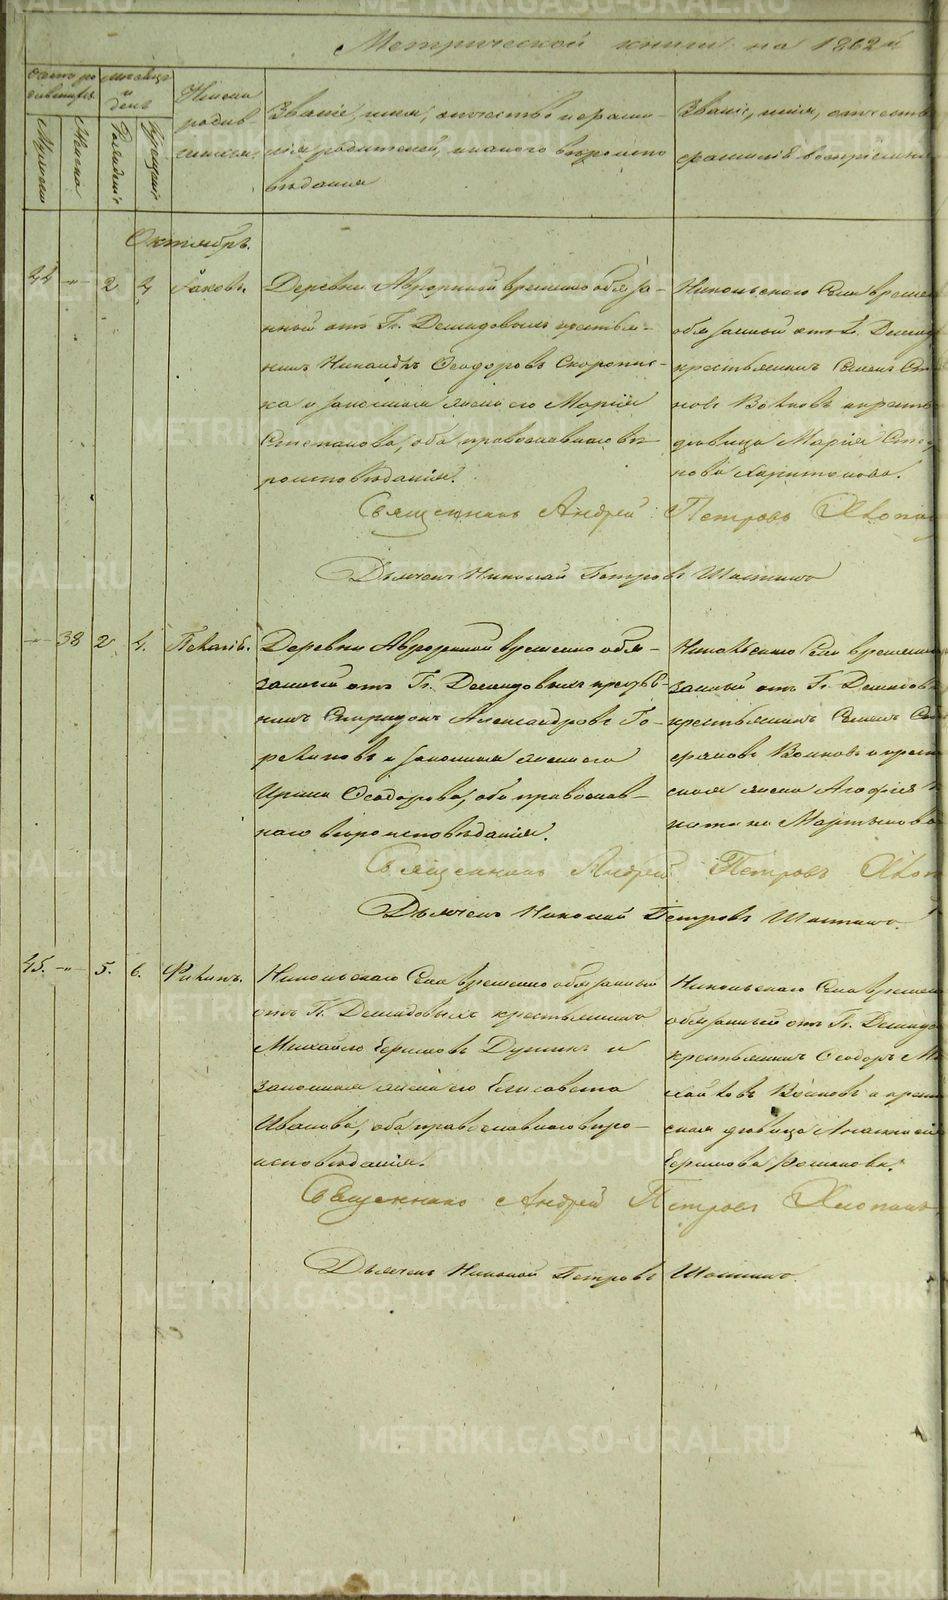 Метрической книги на 1862 й
Счетъ ро
дившихся
Мужеска
Женска
мѣсяцъ
и
день
Рожденiе
Крещенiе
Имена
родив
шихся.
Званiе, имя, отчество и фами-
лiя родителей, и какого вѣроиспо
вѣданiя
Званiе, имя, отчество
фамилiя воспрiемни
Октябрь.
44 -"- 2 4 Iаковъ.
Деревни Аврориной временно обяза-
нной отъ Гг. Демидовыхъ крестья-
нинъ Никандръ Ѳеодоровъ Скоропис-
ка и законная жена его Марiя
Степанова, оба православнаго вѣ-
роисповѣданiя.
Никольскаго Села времен
обязанной отъ Г. Демид
крестьянинъ Семенъ
новъ Волковъ и крест
дѣвица Марiя Степ
нова Харитонова.
Священникъ Андрей Петровъ
Дьячекъ Николай Петровъ
-"- 38 2 4. Пелагiя.
Деревни Аврориной временно обя-
занной отъ Гг. Демидовыхъ кресть-
нинъ Спиридонъ Александровъ Го-
реликовъ и законная жена его
Ирина Ѳеодорова, оба православ-
наго вѣроисповѣданiя.
Никольскаго Села временно
занный отъ Гг. Демидовы
крестьянинъ Семенъ
Волковъ и крест
ская жена Агафiя
Мартынова
Священникъ Андрей Петровъ
Дьячекъ Николай Петровъ
45. -"- 5. 6. Филипъ.
Никольскаго Села временно обязанный
отъ Гг. Демидовыхъ крестьянинъ
Михайло Ефимовъ Душинъ и
законная жена его Елисавета
Иванова, оба православнаго вѣро-
исповѣданiя.
Никольскаго Села времен
обязанный отъ Гг. Демидо
крестьянинъ Ѳеодоръ Ми
хайловъ Волковъ и крест
ская дѣвица Анастасiя
Ефимова Романова.
Священникъ Андрей Петровъ
Дьячекъ Николай Петровъ
METRIKI.GASO-URAL.RU